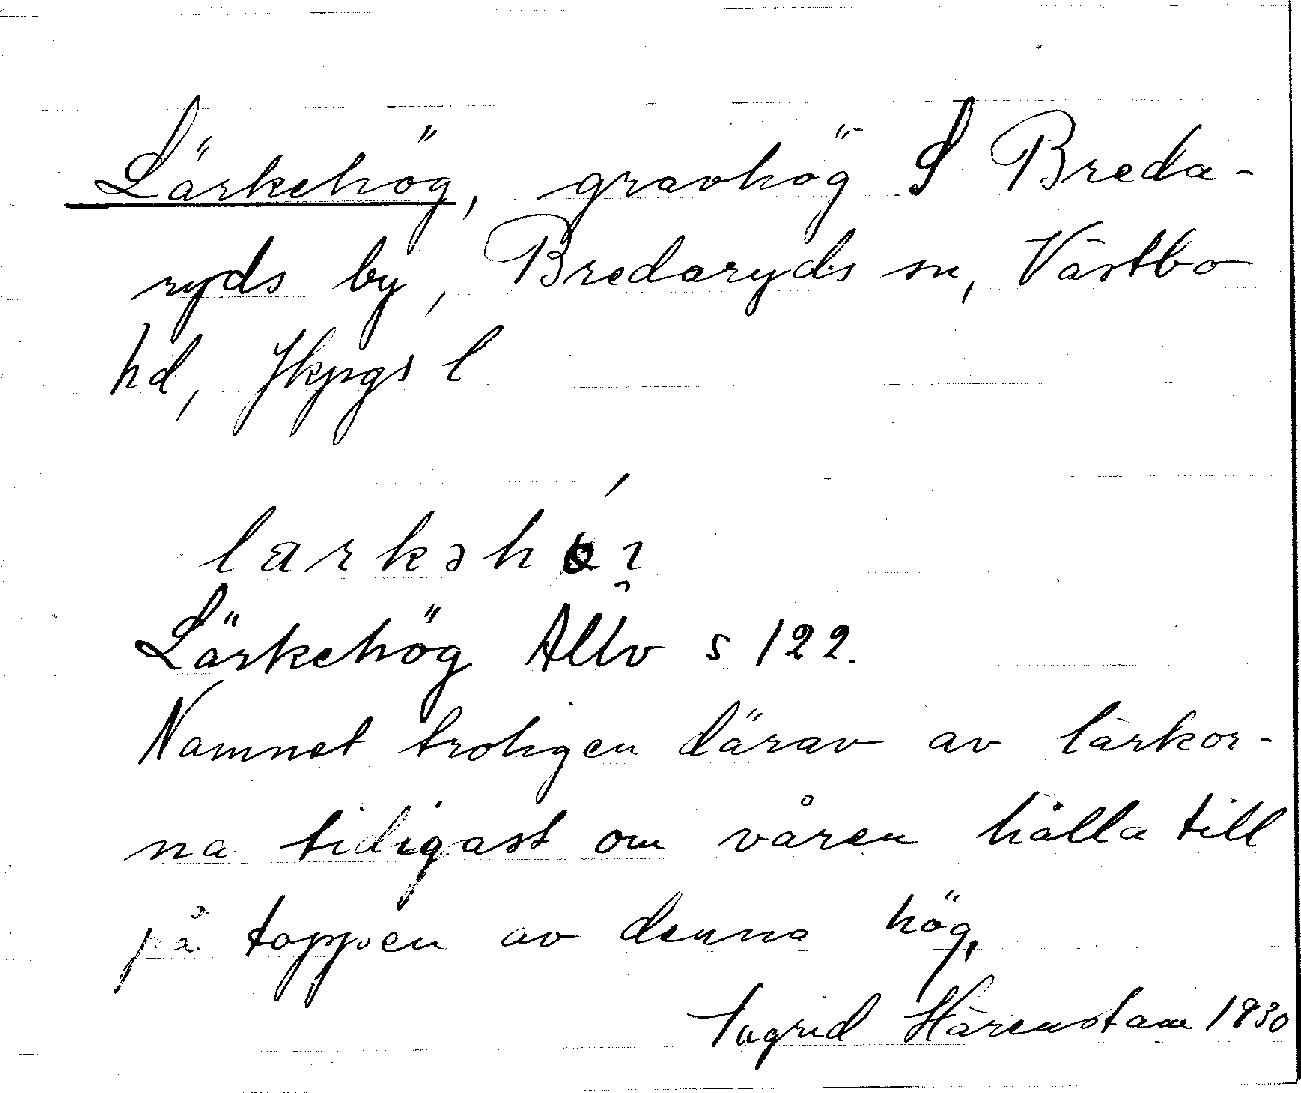 Lärkehög, gravhög S Breda-
ryds by, Bredaryds sn, Västbo
hd, Jkpgs l
Lärkehög Allv s 122.
Namnet troligen därav av lärkor-
na tidigast om våren hålla till
på toppen av denna hög.
Ingrid Härenstam 1930